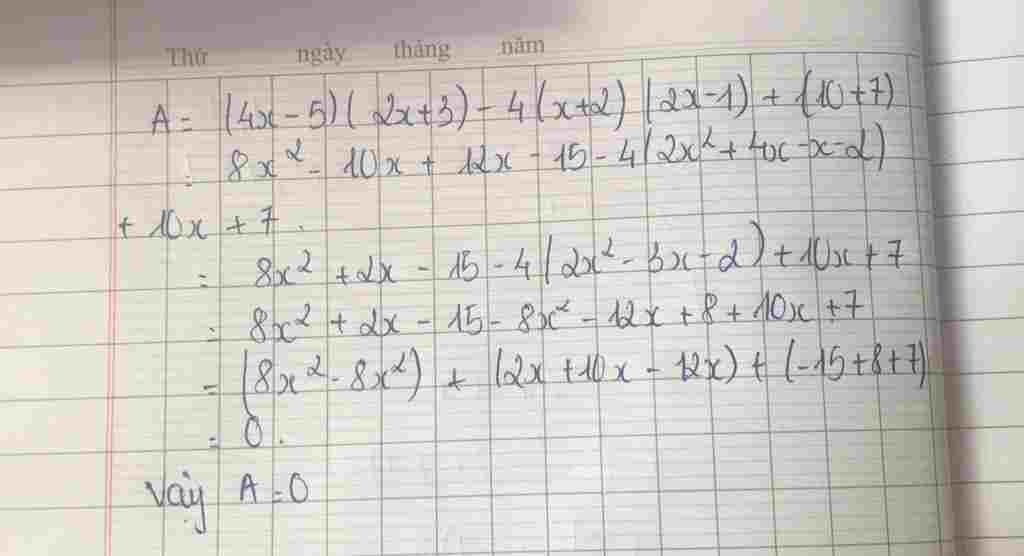 Thứ ngày tháng năm
A = (4x - 5)(2x+3) - 4(x+2)(2x-1) + (10+7)
= 8x² - 10x + 12x - 15 - 4(2x² + 4x - x - 2)
+ 10x + 7.
= 8x² + 2x - 15 - 4(2x² - 3x - 2) + 10x + 7
= 8x² + 2x - 15 - 8x² - 12x + 8 + 10x + 7
= (8x² - 8x²) + (2x + 10x - 12x) + (-15+8+7)
= 0.
Vậy A = 0